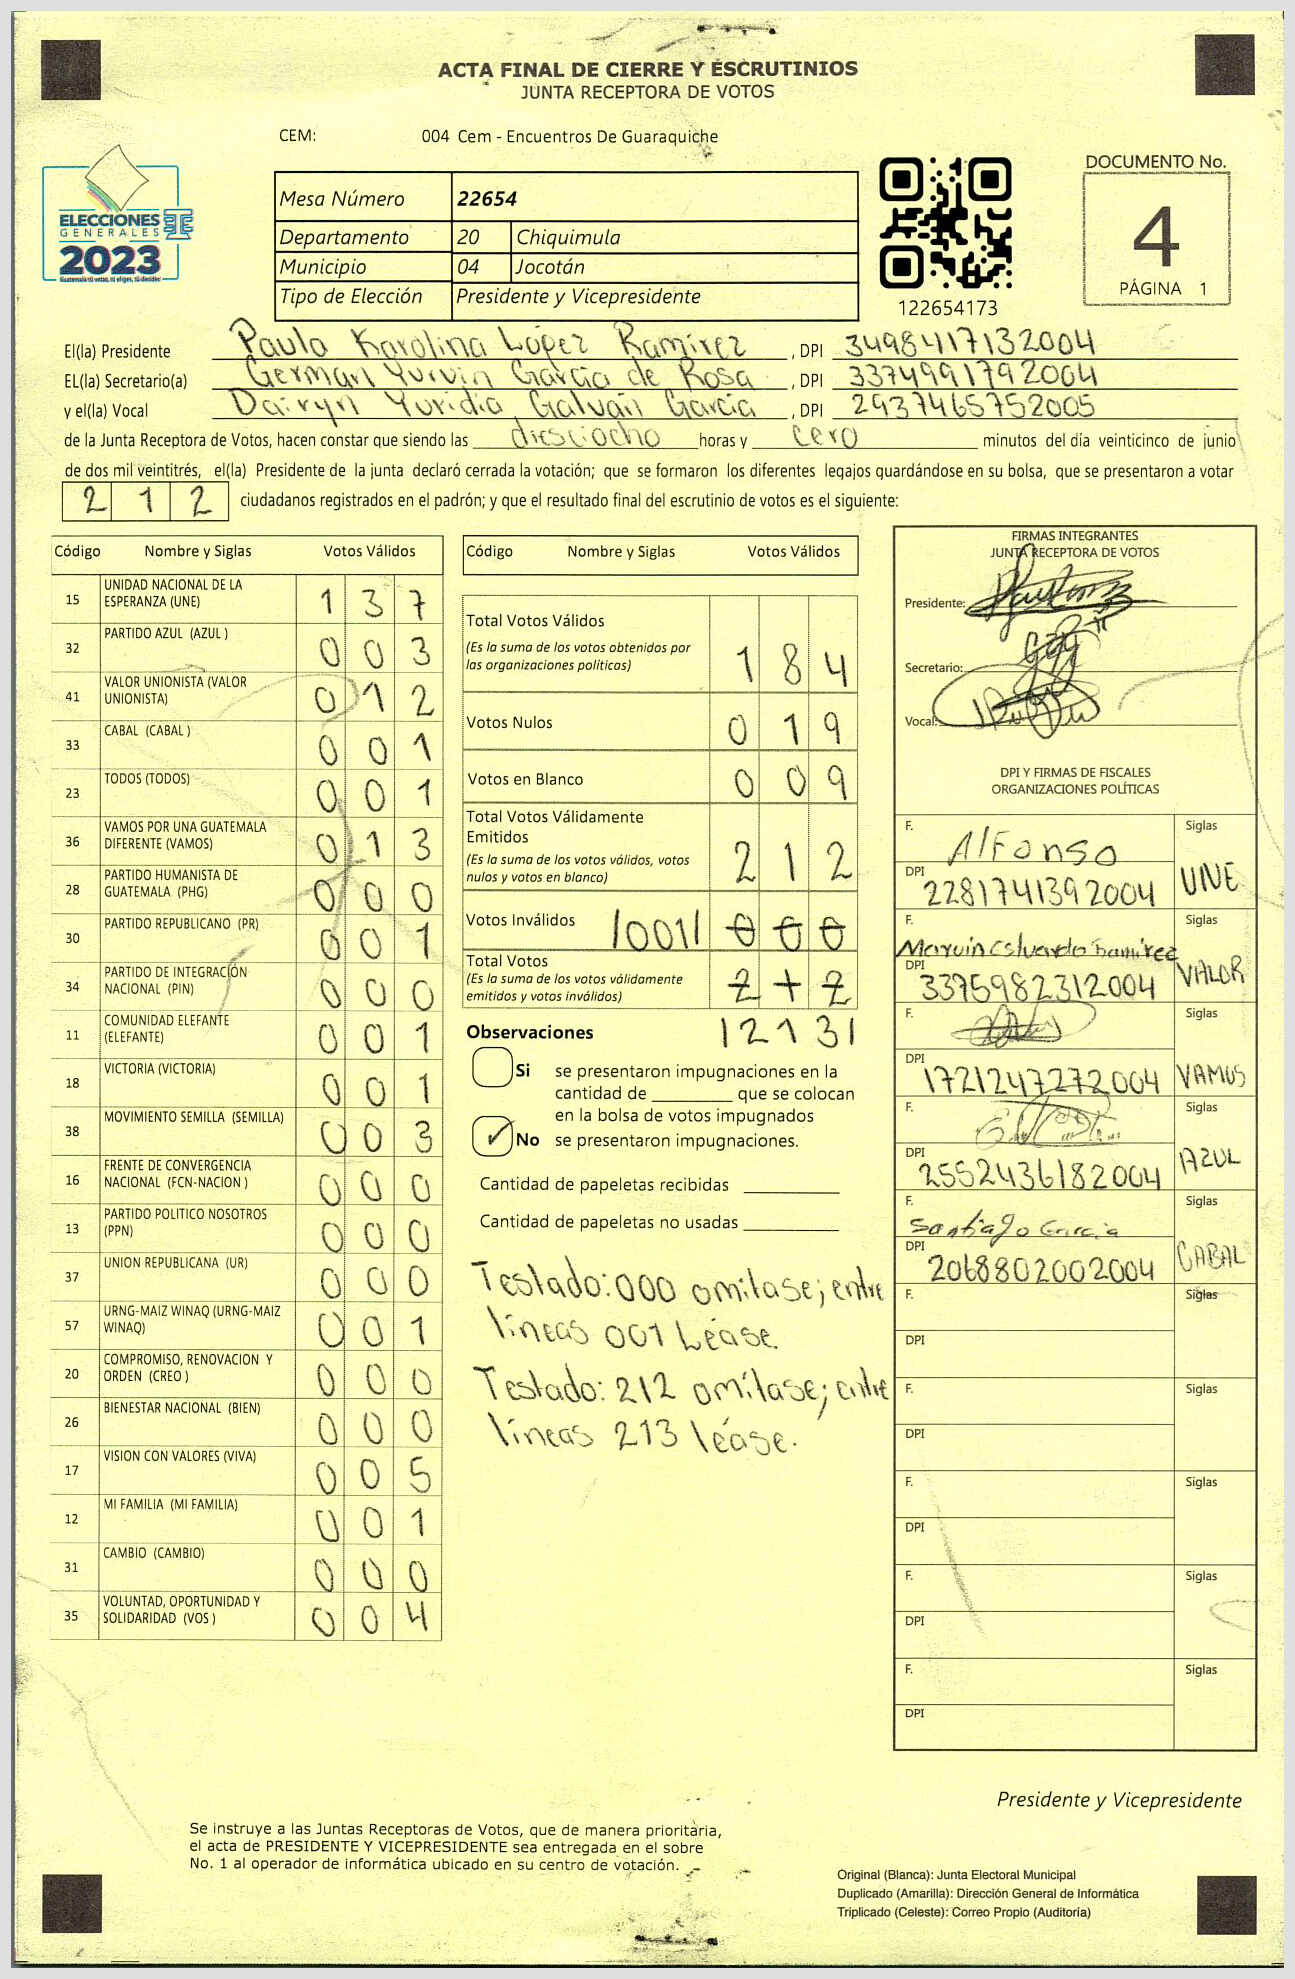 ACTA FINAL DE CIERRE Y ESCRUTINIOS
JUNTA RECEPTORA DE VOTOS
CEM: 004 Cem - Encuentros De Guaraquiche
ELECCIONES
GENERALES
2023
Mesa Número 22654
Departamento 20 Chiquimula
Municipio 04 Jocotán
Tipo de Elección Presidente y Vicepresidente
122654173
DOCUMENTO No.
4
PÁGINA 1
El(la) Presidente Paula Karolina López Ramírez , DPI 3498417132004
EL(la) Secretario(a) German Yurvin García de Rosa , DPI 3374991792004
y el(la) Vocal Dairyn Yuridia Galván García , DPI 2937465752005
de la Junta Receptora de Votos, hacen constar que siendo las diesciocho horas y cero minutos del día veinticinco de junio
de dos mil veintitrés, el(la) Presidente de la junta declaró cerrada la votación; que se formaron los diferentes legajos guardándose en su bolsa, que se presentaron a votar
212 ciudadanos registrados en el padrón; y que el resultado final del escrutinio de votos es el siguiente:
Código Nombre y Siglas Votos Válidos
15 UNIDAD NACIONAL DE LA ESPERANZA (UNE) 137
32 PARTIDO AZUL (AZUL ) 003
41 VALOR UNIONISTA (VALOR UNIONISTA) 012
33 CABAL (CABAL ) 001
23 TODOS (TODOS) 001
36 VAMOS POR UNA GUATEMALA DIFERENTE (VAMOS) 013
28 PARTIDO HUMANISTA DE GUATEMALA (PHG) 000
30 PARTIDO REPUBLICANO (PR) 001
34 PARTIDO DE INTEGRACIÓN NACIONAL (PIN) 000
11 COMUNIDAD ELEFANTE (ELEFANTE) 001
18 VICTORIA (VICTORIA) 001
38 MOVIMIENTO SEMILLA (SEMILLA) 003
16 FRENTE DE CONVERGENCIA NACIONAL (FCN-NACION ) 000
13 PARTIDO POLITICO NOSOTROS (PPN) 000
37 UNION REPUBLICANA (UR) 000
57 URNG-MAIZ WINAQ (URNG-MAIZ WINAQ) 001
20 COMPROMISO, RENOVACION Y ORDEN (CREO ) 000
26 BIENESTAR NACIONAL (BIEN) 000
17 VISION CON VALORES (VIVA) 005
12 MI FAMILIA (MI FAMILIA) 001
31 CAMBIO (CAMBIO) 000
35 VOLUNTAD, OPORTUNIDAD Y SOLIDARIDAD (VOS ) 004
Código Nombre y Siglas Votos Válidos
Total Votos Válidos
(Es la suma de los votos obtenidos por
las organizaciones políticas) 184
Votos Nulos 019
Votos en Blanco 009
Total Votos Válidamente
Emitidos
(Es la suma de los votos válidos, votos
nulos y votos en blanco) 212
Votos Inválidos /001/ 000
Total Votos
(Es la suma de los votos válidamente
emitidos y votos inválidos) 212
/213/
Observaciones
Si se presentaron impugnaciones en la
cantidad de ________ que se colocan
en la bolsa de votos impugnados
No se presentaron impugnaciones.
Cantidad de papeletas recibidas
Cantidad de papeletas no usadas
Testado: 000 omítase; entre
líneas 001 Léase.
Testado: 212 omítase; entre
líneas 213 léase.
FIRMAS INTEGRANTES
JUNTA RECEPTORA DE VOTOS
Presidente:
Secretario:
Vocal:
DPI Y FIRMAS DE FISCALES
ORGANIZACIONES POLÍTICAS
F. Alfonso Siglas
DPI 2281741392004 UNE
F. Marvin Ramírez Siglas
DPI 3375982312004 VALOR
F. Siglas
DPI 1721247272004 VAMOS
F. Siglas
DPI 2552436182004 AZUL
F. Santiago García Siglas
DPI 2068802002004 CABAL
F. Siglas
DPI
F. Siglas
DPI
F. Siglas
DPI
F. Siglas
DPI
F. Siglas
DPI
Presidente y Vicepresidente
Se instruye a las Juntas Receptoras de Votos, que de manera prioritaria,
el acta de PRESIDENTE Y VICEPRESIDENTE sea entregada en el sobre
No. 1 al operador de informática ubicado en su centro de votación.
Original (Blanca): Junta Electoral Municipal
Duplicado (Amarilla): Dirección General de Informática
Triplicado (Celeste): Correo Propio (Auditoría)